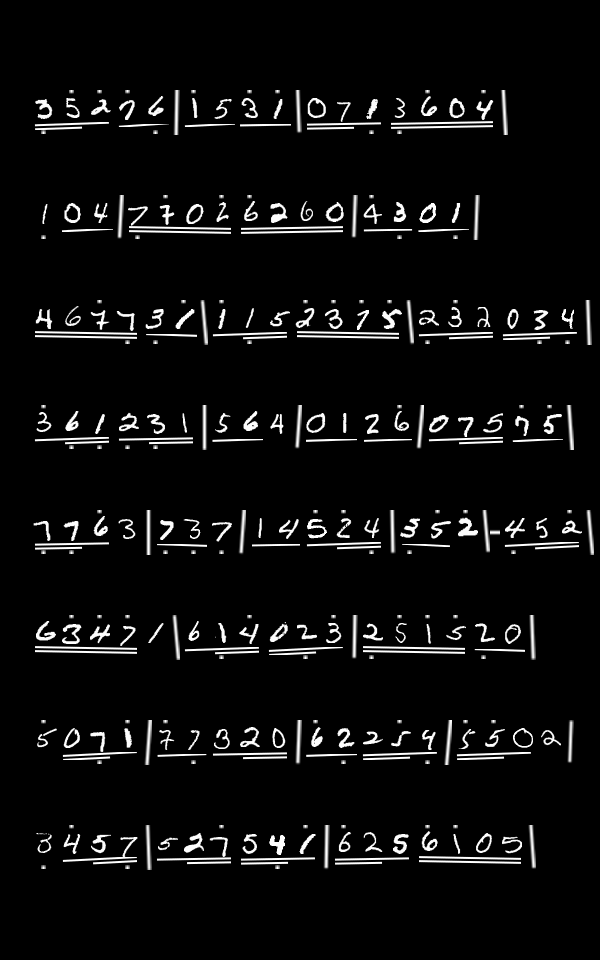 35276|1531|0713604
104|77026260|4301
467731|1152375|232034
361231|564|0126|07575
7763|737|14524|352|-452
63471|614023|251520
5071|77320|62254|5502
3457|527541|6256105